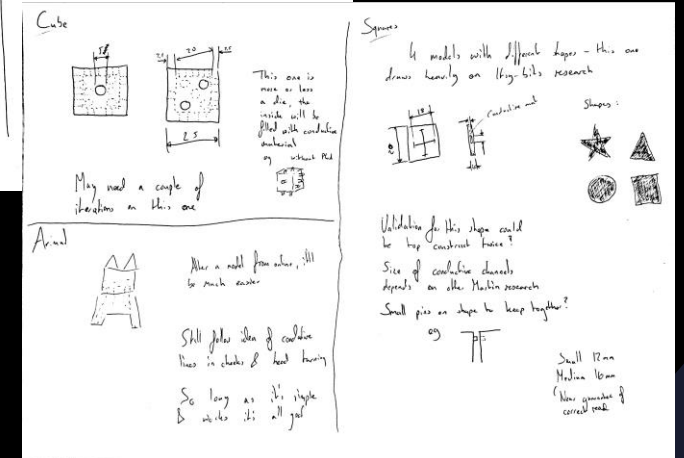 Cube
20
25
This one is
more or less
a die, the
inside will be
filled with conductive
material
eg without PLA
May need a couple of
iterations on this one
Animal
Alter a model from online, it'll
be much easier
Still follow idea of conductive
lines in cheeks & head turning
So long as it's simple
& works it's all good
Squares
4 models with different shapes - this one
draws heavily on Itsy-bits research
conductive mat
20
Shapes:
Validation for this shape could
be top construct twice?
Size of conductive channels
depends on other Martin research
Small pins on shape to keep together?
eg
Small 12mm
Medium 16mm
guarantee of
correct read